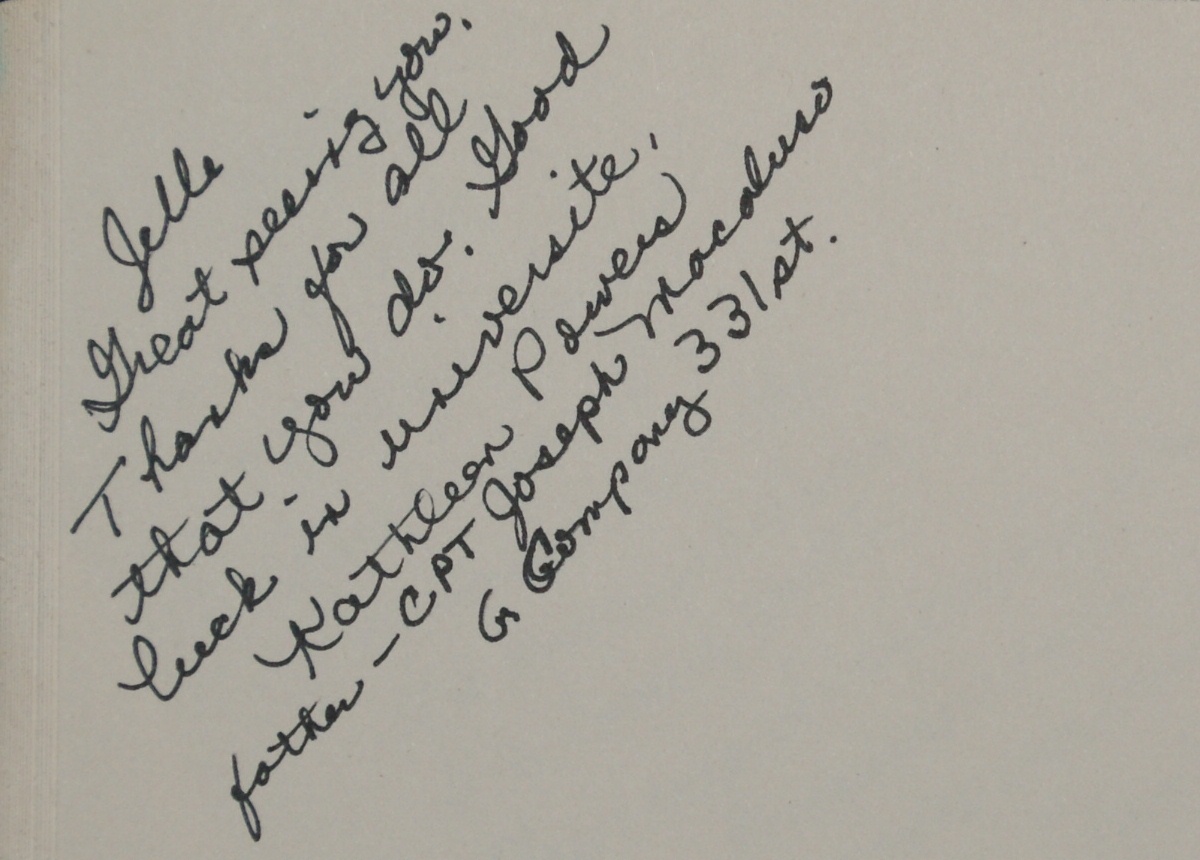 Jelle
Great seeing you.
Thanks for all
that you do. Good
luck in universite.
Kathleen Powers
father - CPT Joseph Macaluso
G Company 331st.